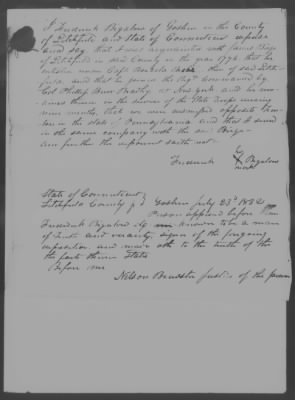 I Frederick Bigalow of Goshen in the County
of Litchfield and State of Connecticut depose
and say that I was acquainted with James Birge
of Litchfield in said County in the year 1776 that he
enlisted under Capt of said Litch
field and that he joined the Regt commanded by
Col Phillip Burr Bradley at New York and he con
tinued there in the service of the State Troops during
nine months, that we were opposite
in the state of Pennsylvania and that I served
in the same company with the sd Birge
and further the deponent saith not
his
Frederick X Bigalow
mark
State of Connecticut
Litchfield County Goshen July 23d 1832
Person appeared before
Frederick Bigalow known to be a man
of Truth and veracity, signer of the foregoing
deposition and made oath to the truth of the
the facts therein Stated
Before me
Nelson Brewster Justice of the peace